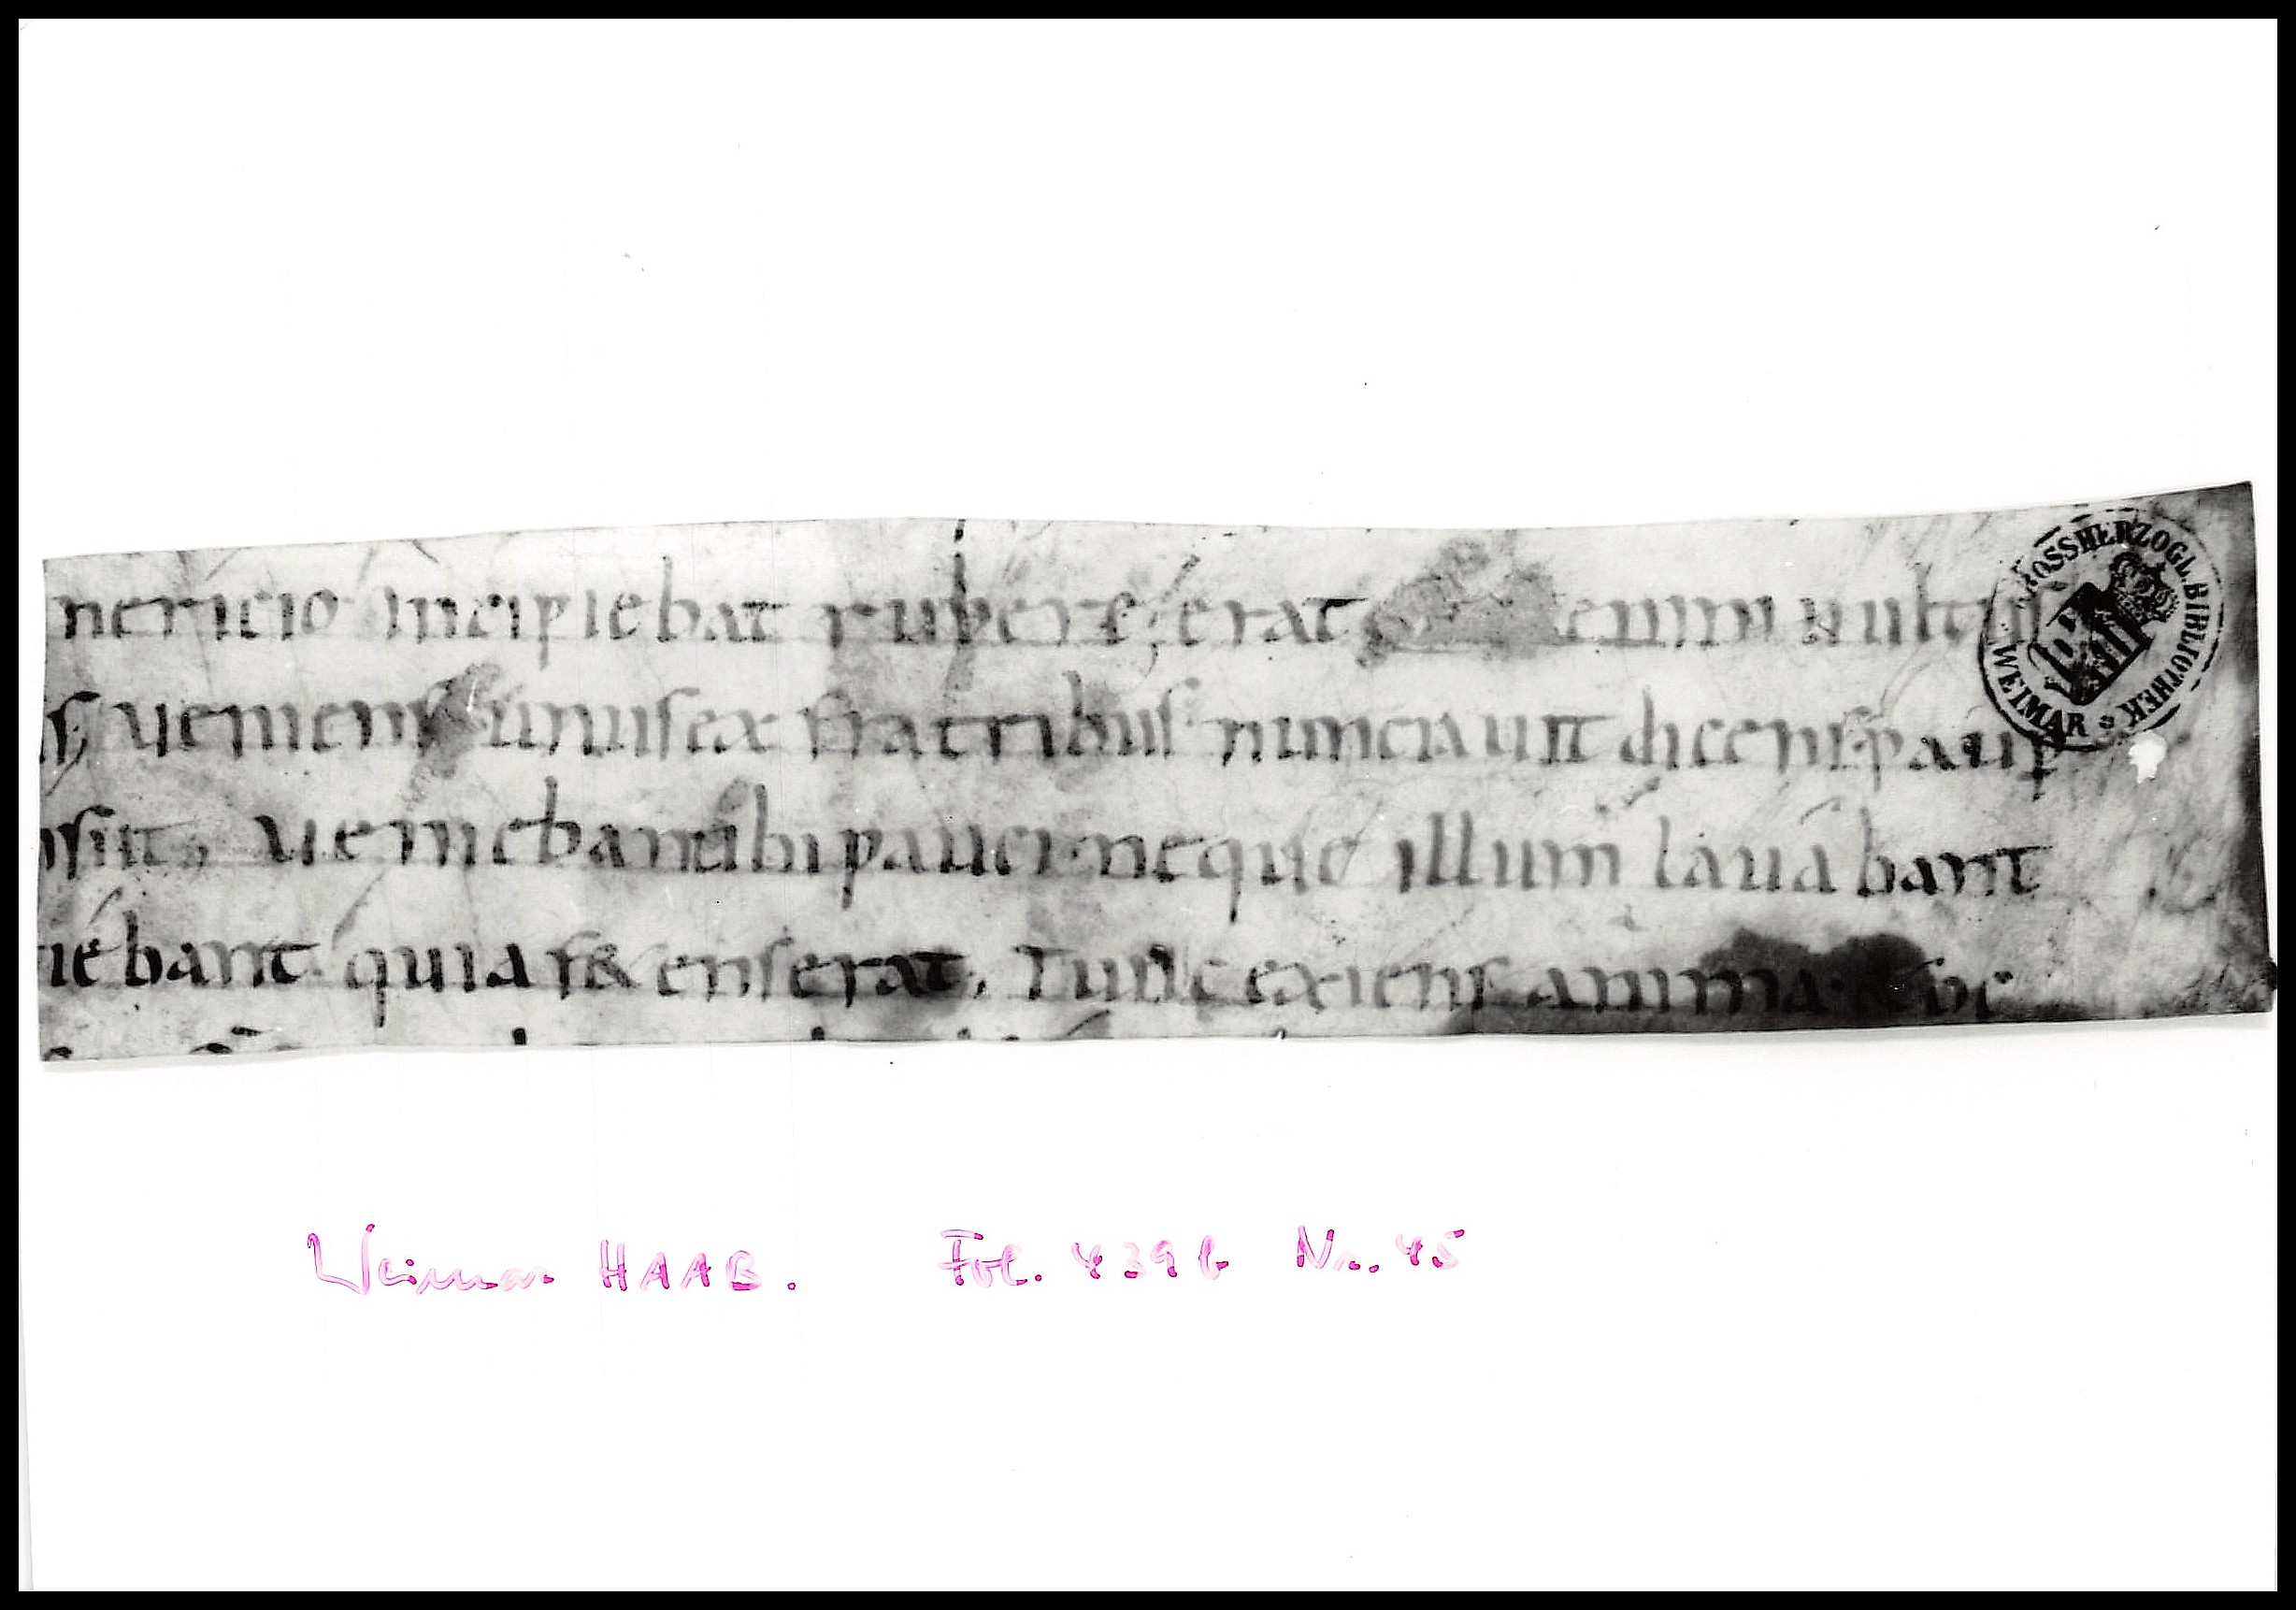 nericio incipiebat rubere, erat enim uultus
s, ueniens unus ex fratribus nunciauit dicens· paup
nsiit, ueniebant ibi pauci· neque illum lauabant
iebant· quia f&ens erat, Tunc exiens anima· &
GROSSHERZOGL. BIBLIOTHEK WEIMAR
Weimar HAAB. Fol. 439 b Nr. 45